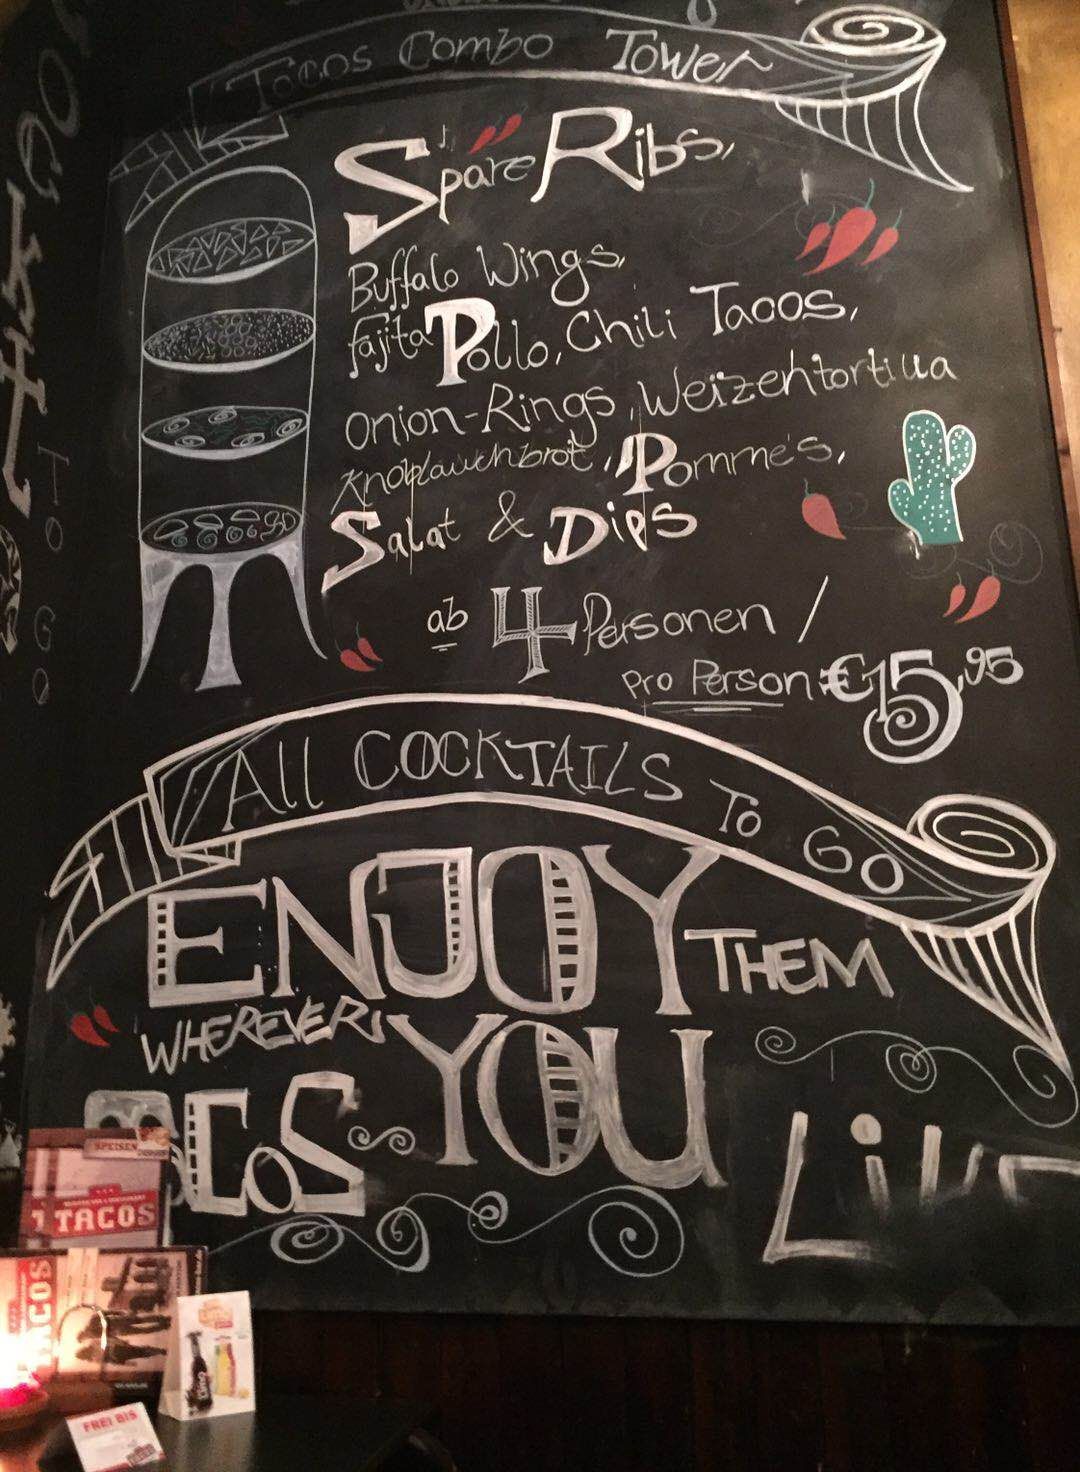 Tacos Combo Tower
Spare Ribs,
Buffalo Wings,
Fajita Pollo, Chili Tacos,
Onion-Rings, Weizentortilla
Knoblauchbrot, Pomme's,
Salat & Dips
ab 4 Personen /
pro Person: €15,95
All COCKTAILS To GO
ENJOY THEM
WHEREVER YOU
To GO
SPEISEN
TACOS
TACOS
FREI BIS